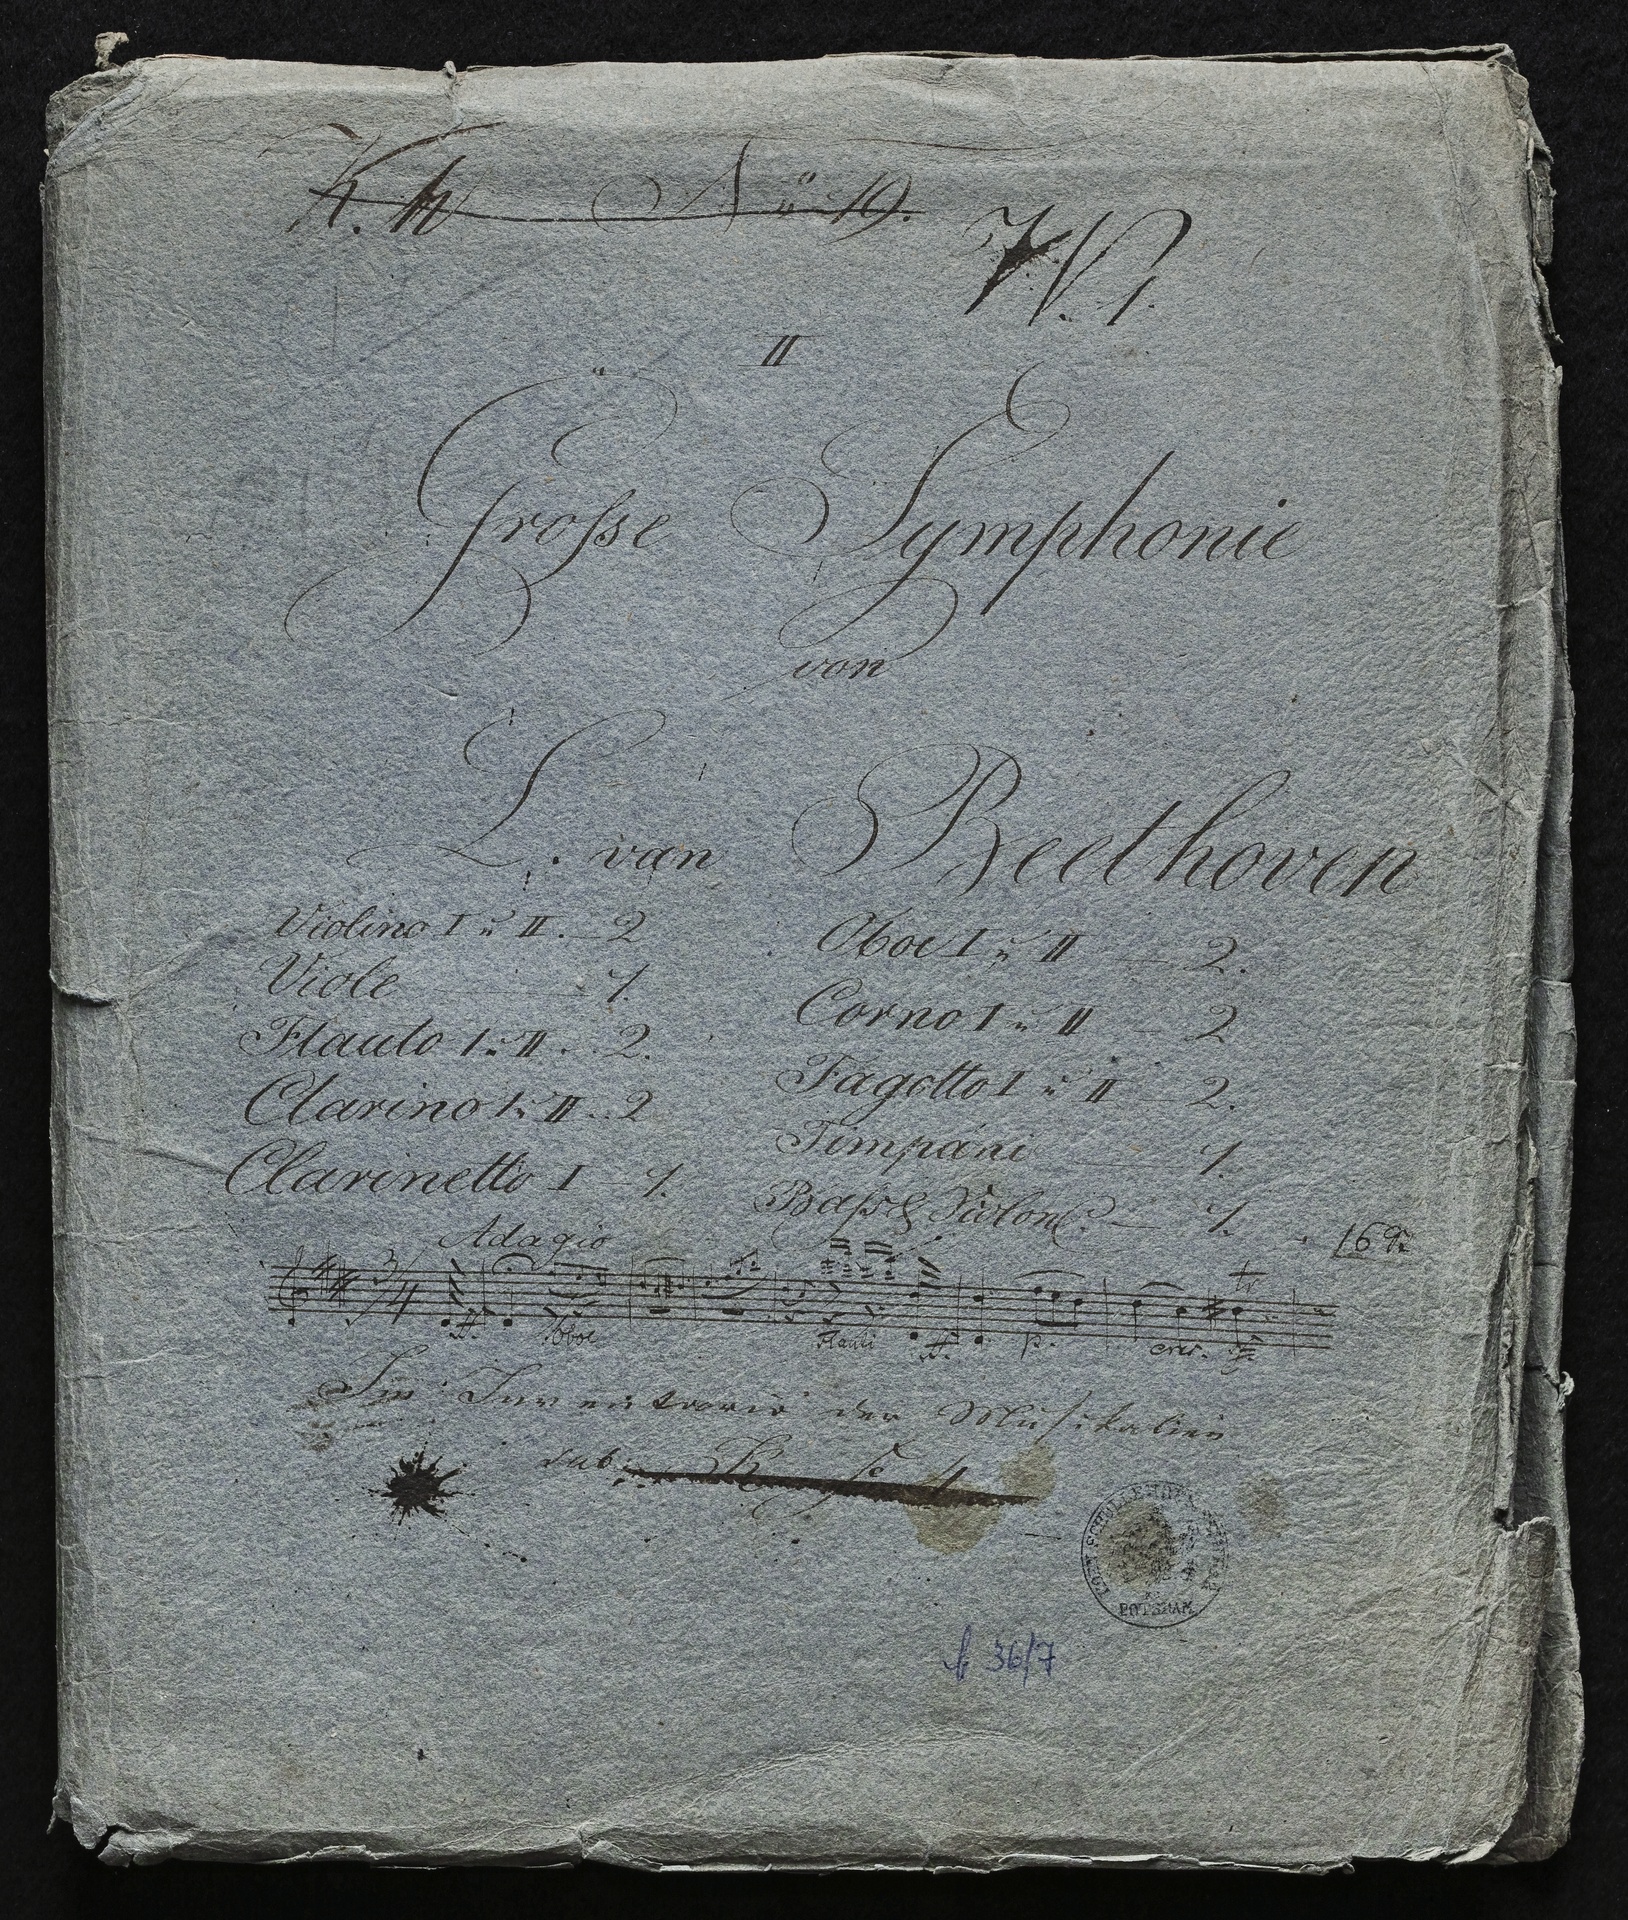 No 19.
II
Grosse Symphonie
von
L. van Beethoven
Violino I u II. 2
Viole 1.
Flauto I u II. 2.
Clarino I u II. 2
Clarinetto I 1.
Oboe I u II 2.
Corno I u II 2
Fagotto I u II 2.
Timpani 1.
Bass & Violonc. 1.
16
Adagio
3/4
ff. Oboe Flauti ff. p. cres.
Im Inventario der Musikalien
sub
POTSDAM
36/7